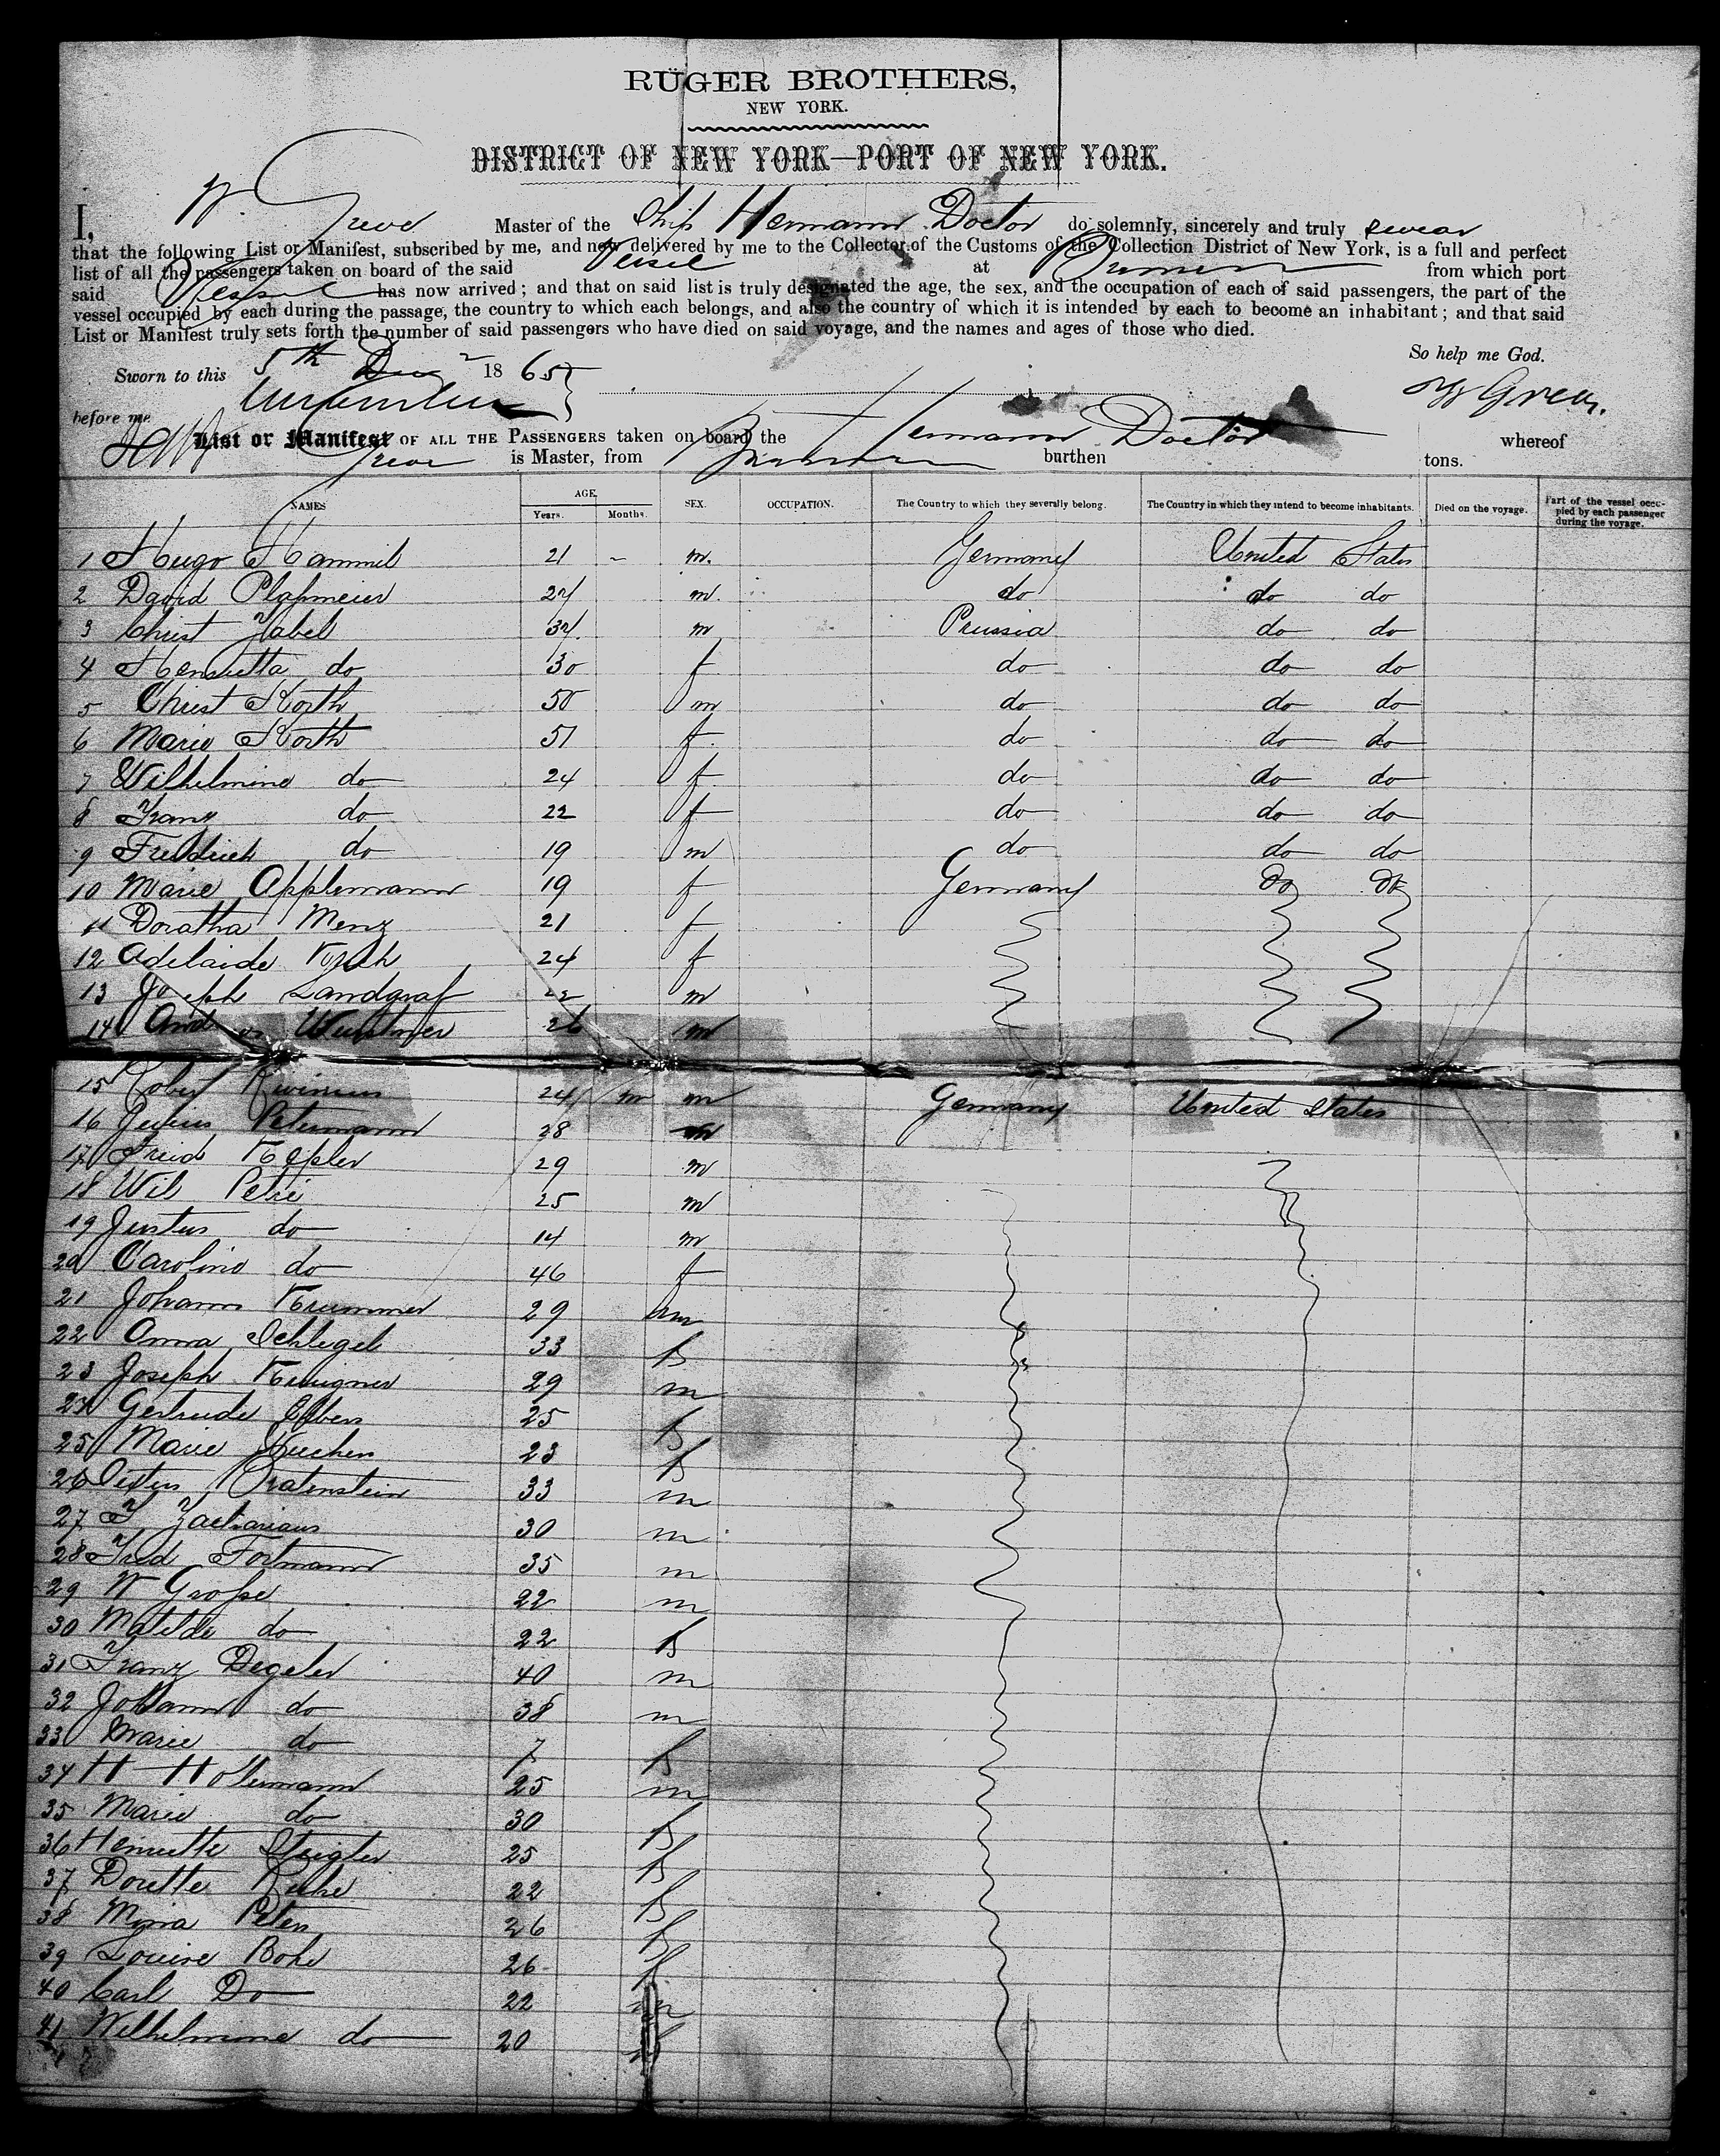 RÜGER BROTHERS,
NEW YORK.
DISTRICT OF NEW YORK—PORT OF NEW YORK.
I, W. Greve Master of the Ship Hermann Doctor do solemnly, sincerely and truly swear
that the following List or Manifest, subscribed by me, and now delivered by me to the Collector of the Customs of the Collection District of New York, is a full and perfect
list of all the passengers taken on board of the said Vessel at Bremen from which port
said Vessel has now arrived; and that on said list is truly designated the age, the sex, and the occupation of each of said passengers, the part of the
vessel occupied by each during the passage, the country to which each belongs, and also the country of which it is intended by each to become an inhabitant; and that said
List or Manifest truly sets forth the number of said passengers who have died on said voyage, and the names and ages of those who died.
So help me God.
Sworn to this 5th Dec 1865
W Greve.
before me
List or Manifest OF ALL THE PASSENGERS taken on board the Hermann Doctor whereof
Greve is Master, from Bremen burthen tons.
NAMES AGE. Years. Months. SEX. OCCUPATION. The Country to which they severally belong. The Country in which they intend to become inhabitants. Died on the voyage. Part of the vessel occupied by each passenger during the voyage.
1 Hugo Hammel 21 - m. Germany United States
2 David Plaßmeier 24 m. do do do
3 Christ Zabel 34. m Prussia do do
4 Henrietta do 30 f do do do
5 Christ Korth 50 m do do do
6 Marie Korth 51 f. do do do
7 Wilhelmine do 24 f. do do do
8 Franz do 22 f do do do
9 Friedrich do 19 m do do do
10 Marie Applemann 19 f Germany do do
11 Doratha Menz 21 f
12 Adelaide 24 f
13 Joseph Landgraf 22 m
14 26 m
15 Robert 24 m m Germany United States
16 Julius Petermann 28 m
17 Fried Kepler 29 m
18 Wil Petri 25 m
19 Justus do 14 m
20 Caroline do 46 f
21 Johann Krummel 29 m
22 Anna Schlegel 33 f
23 Joseph 29 m
24 Gertrude Elbers 25 f
25 Marie Kuchen 23 f
26 Pratenstein 33 m
27 F Zacharians 30 m
28 Fred Fortmann 35 m
29 W Große 22 m
30 Matilde do 22 f
31 Franz Degeler 40 m
32 Johann do 38 m
33 Marie do 7 f
34 H Holtermann 25 m
35 Marie do 30 f
36 Henriette Steigler 25 f
37 Dorette 22 f
38 Minna Peters 26 f
39 Louise Bohe 26 f
40 Carl Do 22 m
41 Wilhelmine do 20 f